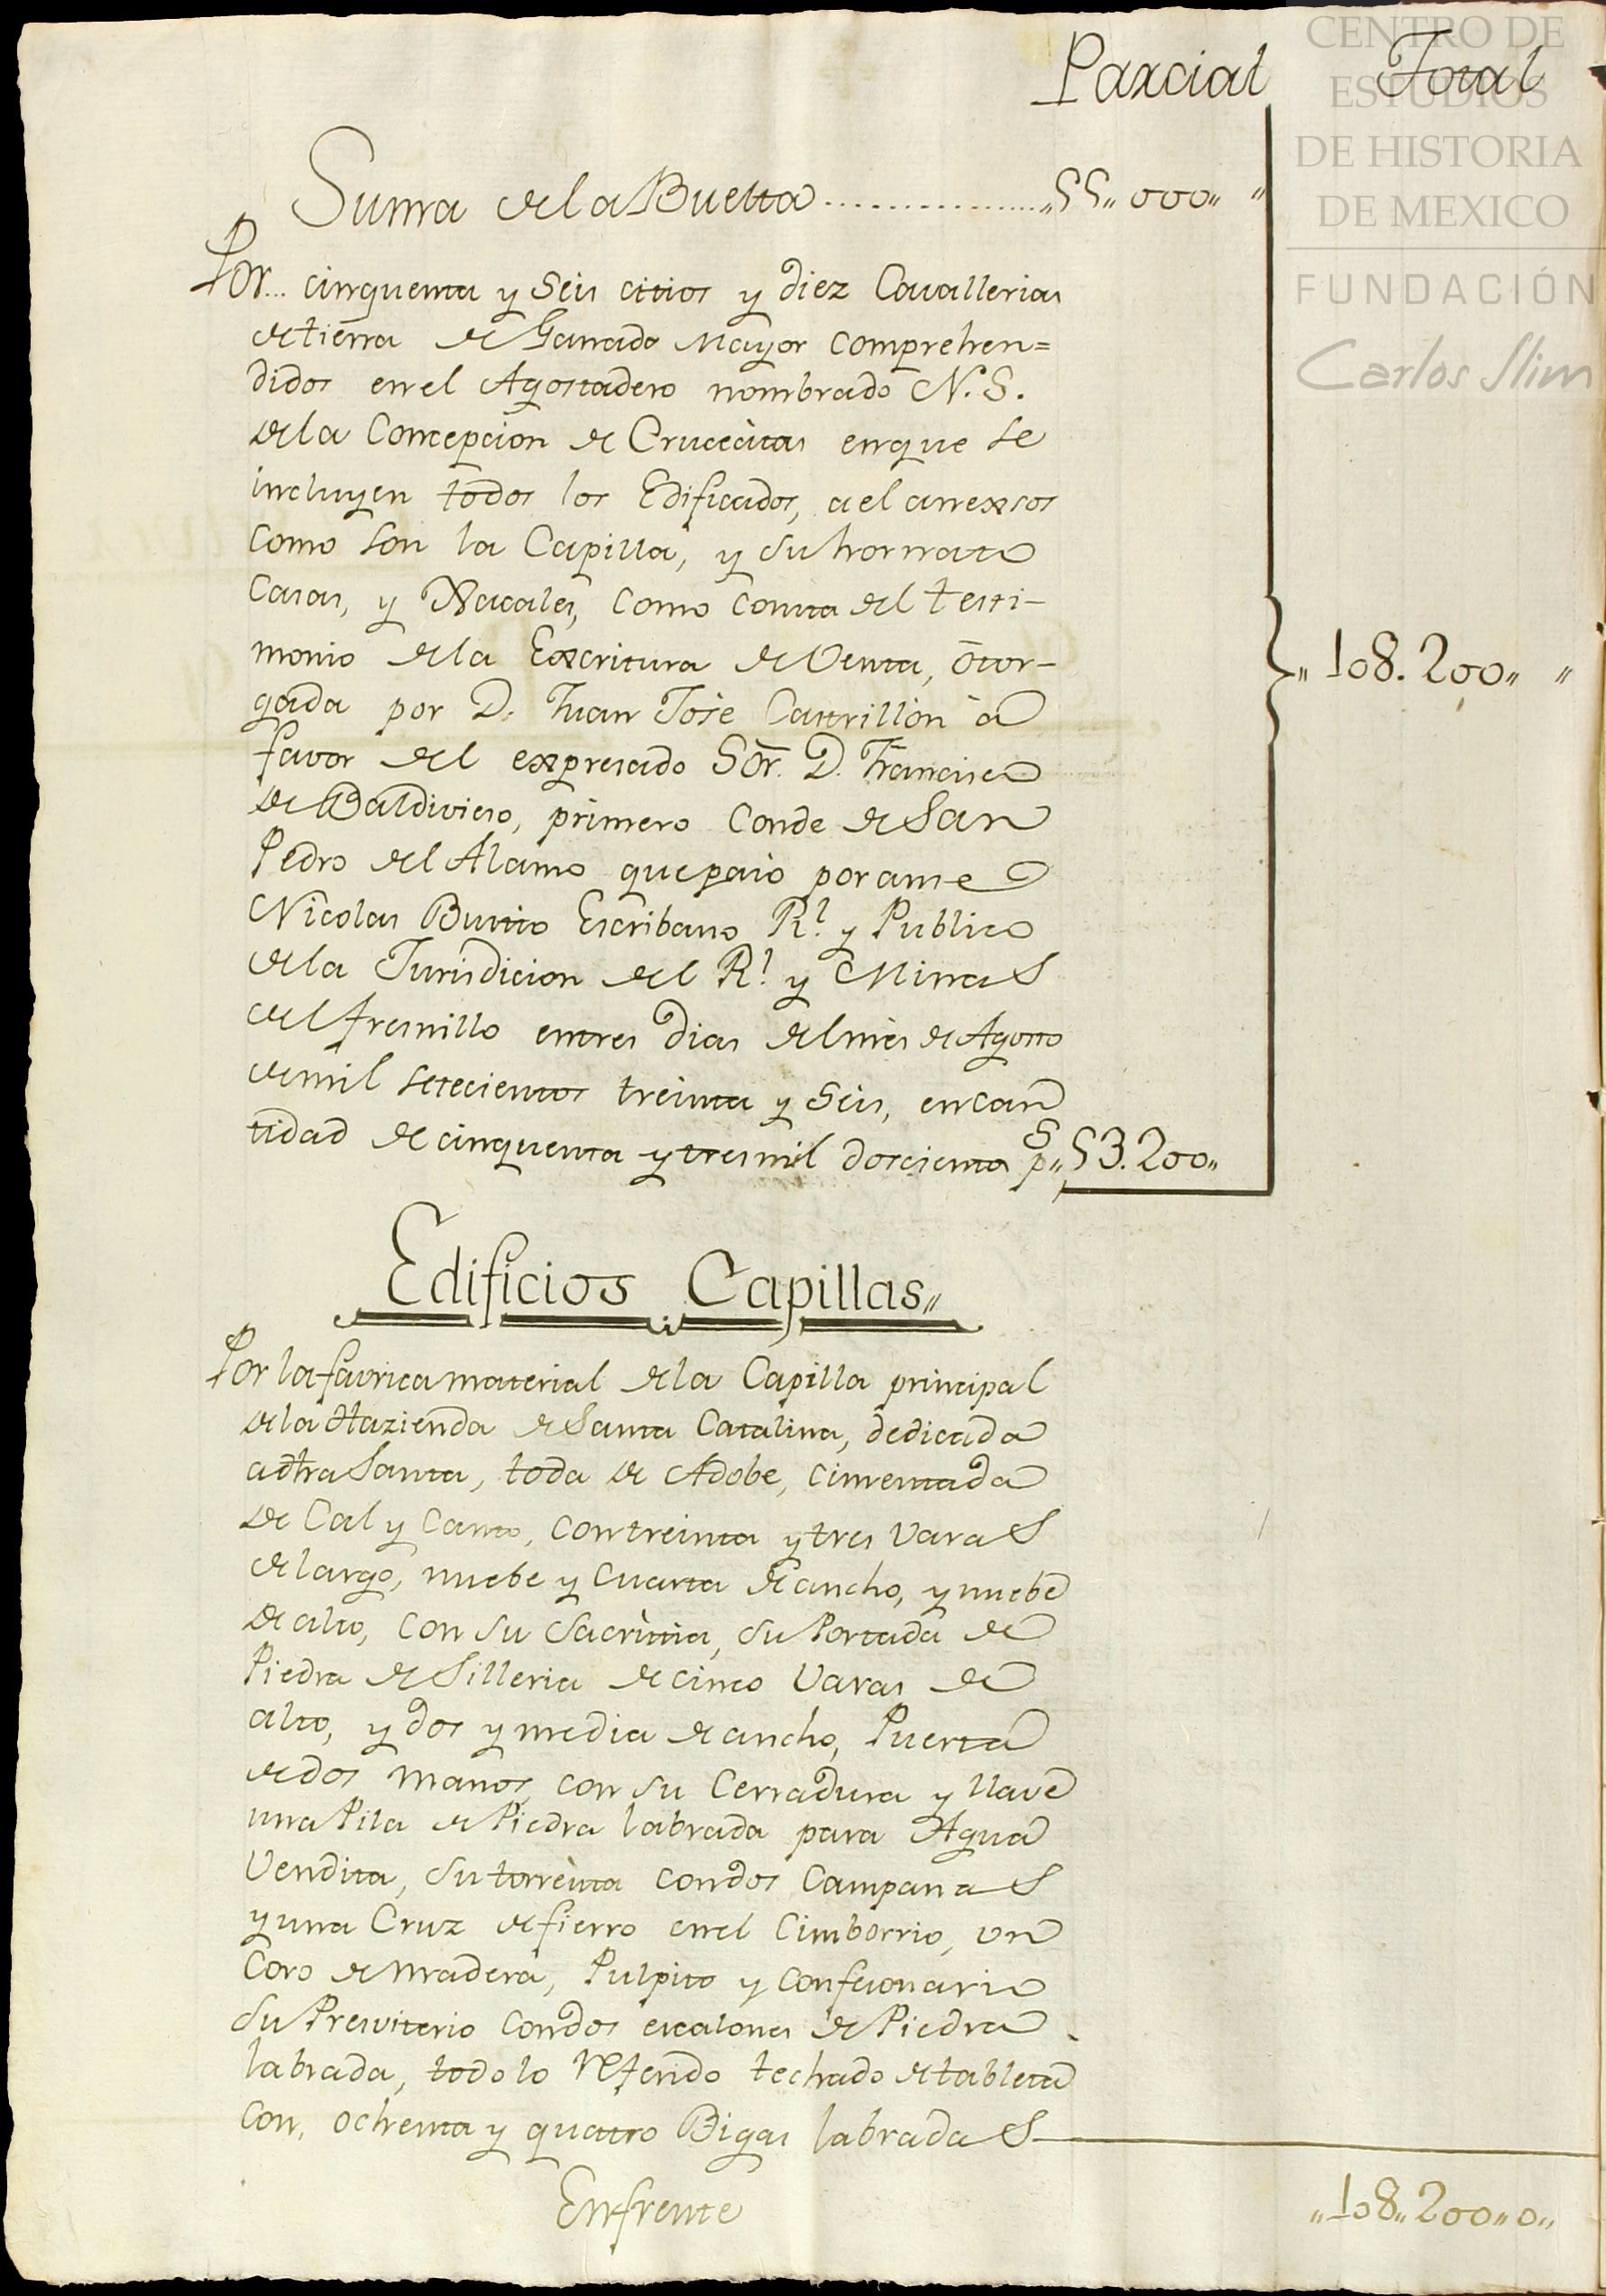 CENTRO DE
ESTUDIOS
DE HISTORIA
DE MEXICO
FUNDACIÓN
Carlos Slim
Parcial Total
Suma de la Buelta .................. „55„000„ „
Por... cinquenta y Seis citios y diez Cavallerias
de tierra de Ganado Mayor comprehen=
didos en el Agostadero nombrado N. S.
de la Concepcion de Crucècitas en que se
incluyen todos los Edificados, a el annexsos
como son la Capilla, y su hornato
Casas, y Xacales, como consta del testi-
monio de la Exscritura de Venta, òtor-
gada por D. Juan Jose Castrillòn à
favor del expresado Sor. D. Francisco
de Baldivieso, primero Conde de San
Pedro del Alamo que pasò por ante
Nicolas Busto Escribano Rl. y Publico
de la Jurisdicion del Rl. y Minas
del fresnillo en tres dias del mes de Agosto
de mil setecientos treinta y Seis, en can
tidad de cinquenta y tres mil doscientos ps„ 53.200„
„ 108.200„ „
Edificios Capillas„
Por la favrica material de la Capilla principal
de la Hazienda de Santa Catalina, dedicada
a dha Santa, toda de Adobe, cimentada
de Cal y Canto, con treinta y tres varas
de largo, nuebe y cuarta de ancho, y nuebe
de alto, con su Sacristia, su Portada de
Piedra de Silleria de cinco Varas de
alto, y dos y media de ancho, Puerta
de dos manos, con su Cerradura y llave
una Pila de Piedra labrada para Agua
Vendita, su torrècita con dos Campanas
y una Cruz de fierro en el Cimborrio, un
Coro de madera, Pulpito y Confesionario
su Presviterio con dos escalones de Piedra
labrada, todo lo Referido techado de tableta
con, ochenta y quatro Bigas labradas
Enfrente „108„200„0„